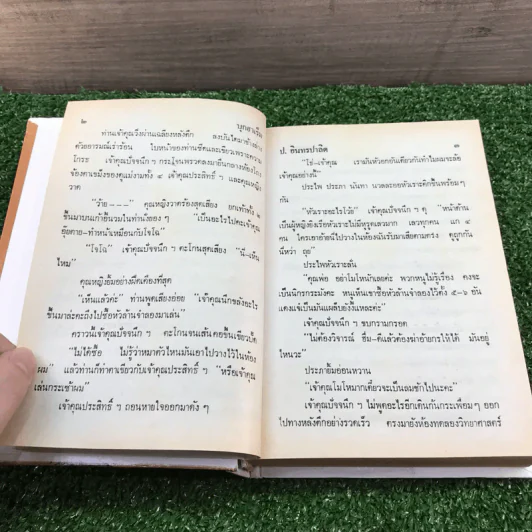 ๒
บุกสามรีม
ท่านเจ้าคุณวิ่งผ่านเฉลียงหลังตึก ลงบันไดมาข้างล่าง
ด้วยอารมณ์เร่าร้อน ใบหน้าของท่านซีดและเขียวเพราะความ
โกรธ เจ้าคุณปัจจนึก ฯ กระโจนพรวดลงมายืนกลางห้องโถง
จ้องตาเขม็งมองดูแม่งามทั้ง ๔ เจ้าคุณประสิทธิ์ ฯ และคุณหญิง
วาด
"ว้าย---" คุณหญิงวาดร้องสุดเสียง ยกเท้าทั้ง ๒
ขึ้นมาบนเก้าอี้นวมในท่านั่งยอง ๆ "เป็นอะไรไปคะเจ้าคุณ
อุ๊ยตาย-ทำหน้าเหมือนกับโจโฉ"
"โจโฉ" เจ้าคุณปัจจนึก ฯ ตะโกนสุดเสียง "นี่-เห็น
ไหม"
คุณหญิงยิ้มอย่างฝืดเคืองที่สุด
"เห็นแล้วค่ะ" ท่านพูดเสียงอ่อย "เจ้าคุณนึกขลังอะไร
ขึ้นมาล่ะคะถึงไปซื้อหัวล้านจำลองมาเล่น"
คราวนี้เจ้าคุณปัจจนึก ฯ ตะโกนจนเส้นคอขึ้นเขียวปั้ด
"ไม่ได้ซื้อ ไม่รู้ว่าหมาตัวไหนมันเอาไปวางไว้ในห้อง
ผม" แล้วท่านก็ทำตาเขียวกับเจ้าคุณประสิทธิ์ ฯ "หรือเจ้าคุณ
เล่นกระเซ้าผม"
เจ้าคุณประสิทธิ์ ฯ ถอนหายใจออกมาดัง ๆ
ป. อินทรปาลิต
๓
"โธ่-เจ้าคุณ เรามันหัวอกอันเดียวกันทำไมผมจะล้อ
เจ้าคุณอย่างนี้"
ประไพ ประภา นันทา นวลละออหัวเราะคิกขึ้นพร้อมๆ
กัน
"หัวเราะอะไรโว้ย" เจ้าคุณปัจจนึก ฯ ดุ "หน้าด้าน
เป็นผู้หญิงยิงเรือหัวเราะไม่มีหูรูดเลวมาก เลวทุกคน แก ๔
คน ใครเอาอ้ายนี่ไปวางในห้องฉันรับมาเสียตามตรง ดูถูกกัน
นี่หว่า ถุย"
ประไพหัวเราะลั่น
"คุณพ่อ อย่าโมโหนักเลยค่ะ พวกหนูไม่รู้เรื่อง คงจะ
เป็นนิกรกระมังคะ หนูเห็นเขาซื้อหัวล้านจำลองไว้ตั้ง ๕-๖ อัน
แดงแจ๋เป็นมันแผล็บยังงี้แหละค่ะ"
เจ้าคุณปัจจนึก ฯ ขบกรามกรอด
"ไม่ต้องวิจารณ์ ฮึ่ม-ดีแล้วต้องฆ่าอ้ายกรให้ได้ มันอยู่
ไหนวะ"
ประภายิ้มอ่อนหวาน
"เจ้าคุณโมโหมากเดี๋ยวจะเป็นลมชักไปนะคะ"
เจ้าคุณปัจจนึก ฯ ไม่พูดอะไรอีกเดินก้นกระเพื่อมๆ ออก
ไปทางหลังตึกอย่างรวดเร็ว ตรงมายังห้องทดลองวิทยาศาสตร์